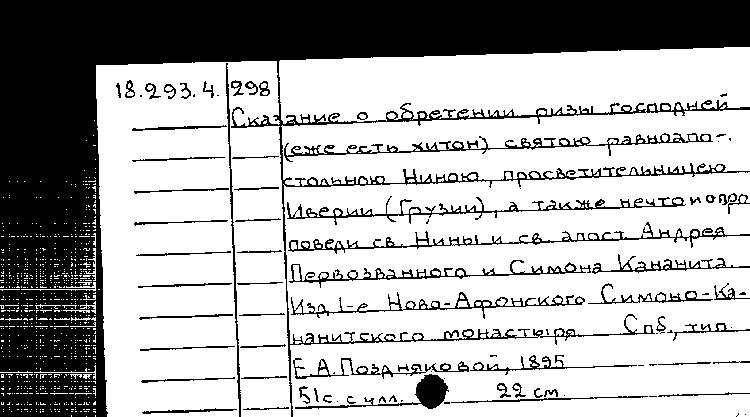 18.293.4. 298
Сказание о обретении ризы господней
(еже есть хитон) святою равноапо-
стольною Ниною, просветительницею
Иверии (Грузии), а также нечто о про
поведи св. Нины и св. апост. Андрея
Первозванного и Симона Кананита.
Изд. 1-е Ново-Афонского Симоно-Ка-
нанитского монастыря Спб., тип.
Е.А. Поздняковой, 1895
51 с. с илл. 22 см.